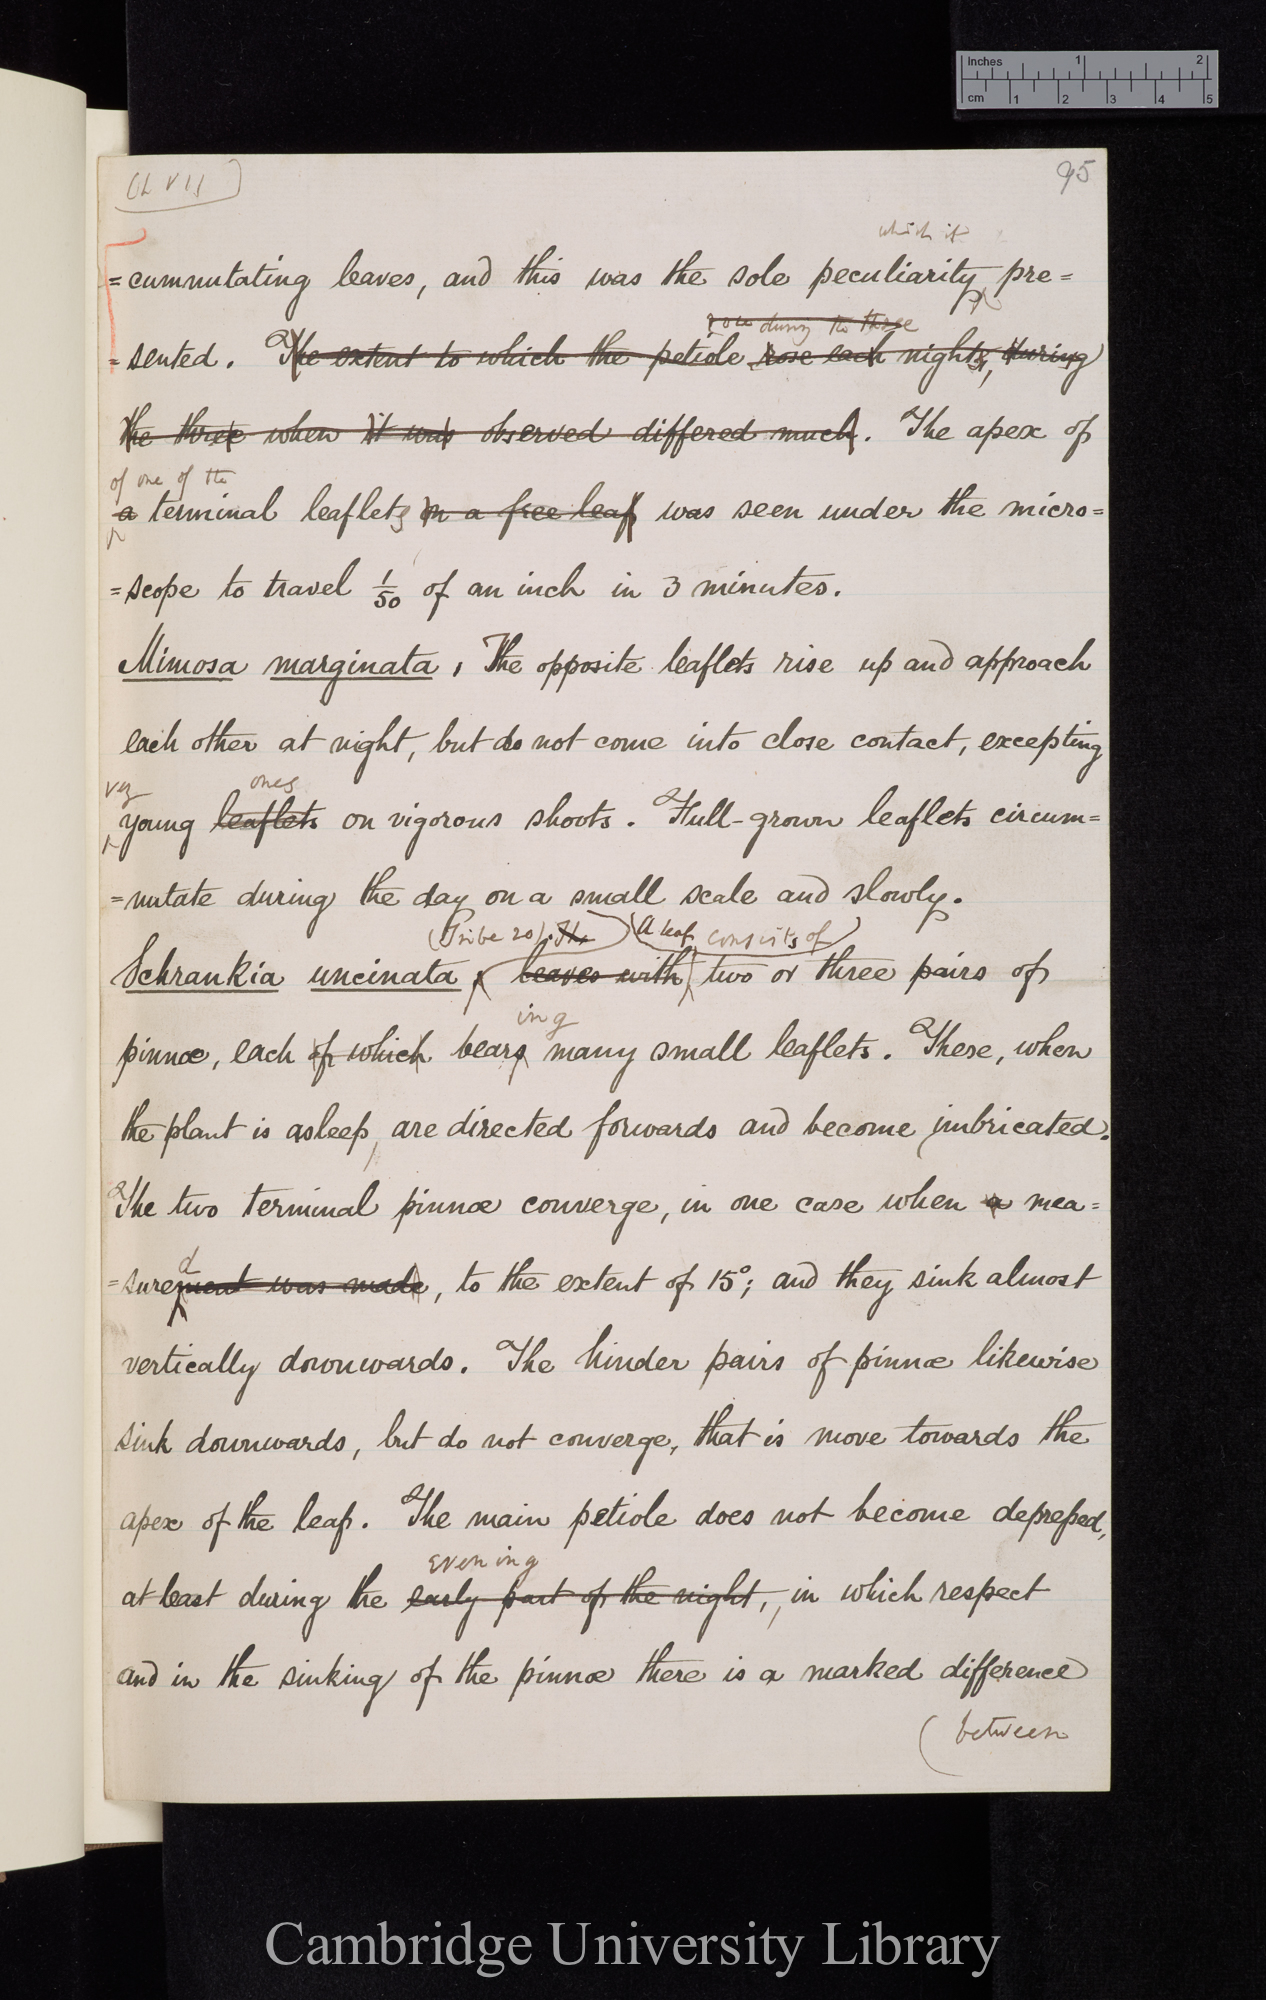 Inches 1 2
cm 1 2 3 4 5
Ch VII
95
which it
=cumnutating leaves, and this was the sole peculiarity pre=
rose during the three
=sented. The extent to which the petiole rose each nights, during
the three when it was observed differed much. The apex of
of one of the
a terminal leaflets on a free leaf was seen under the micro=
=scope to travel 1/50 of an inch in 3 minutes.
Mimosa marginata, The opposite leaflets rise up and approach
each other at night, but do not come into close contact, excepting
very ones
young leaflets on vigorous shoots. Full-grown leaflets circum=
=nutate during the day on a small scale and slowly.
(Tribe 20). The A leaf consists of
Schrankia uncinata, leaves with two or three pairs of
ing
pinnæ, each of which bears many small leaflets. These, when
the plant is asleep, are directed forwards and become imbricated.
The two terminal pinnæ converge, in one case when a mea=
d
=surement was made, to the extent of 15°; and they sink almost
vertically downwards. The hinder pairs of pinnæ likewise
sink downwards, but do not converge, that is move towards the
apex of the leaf. The main petiole does not become depressed,
evening
at least during the early part of the night, in which respect
and in the sinking of the pinnæ there is a marked difference
(between
Cambridge University Library